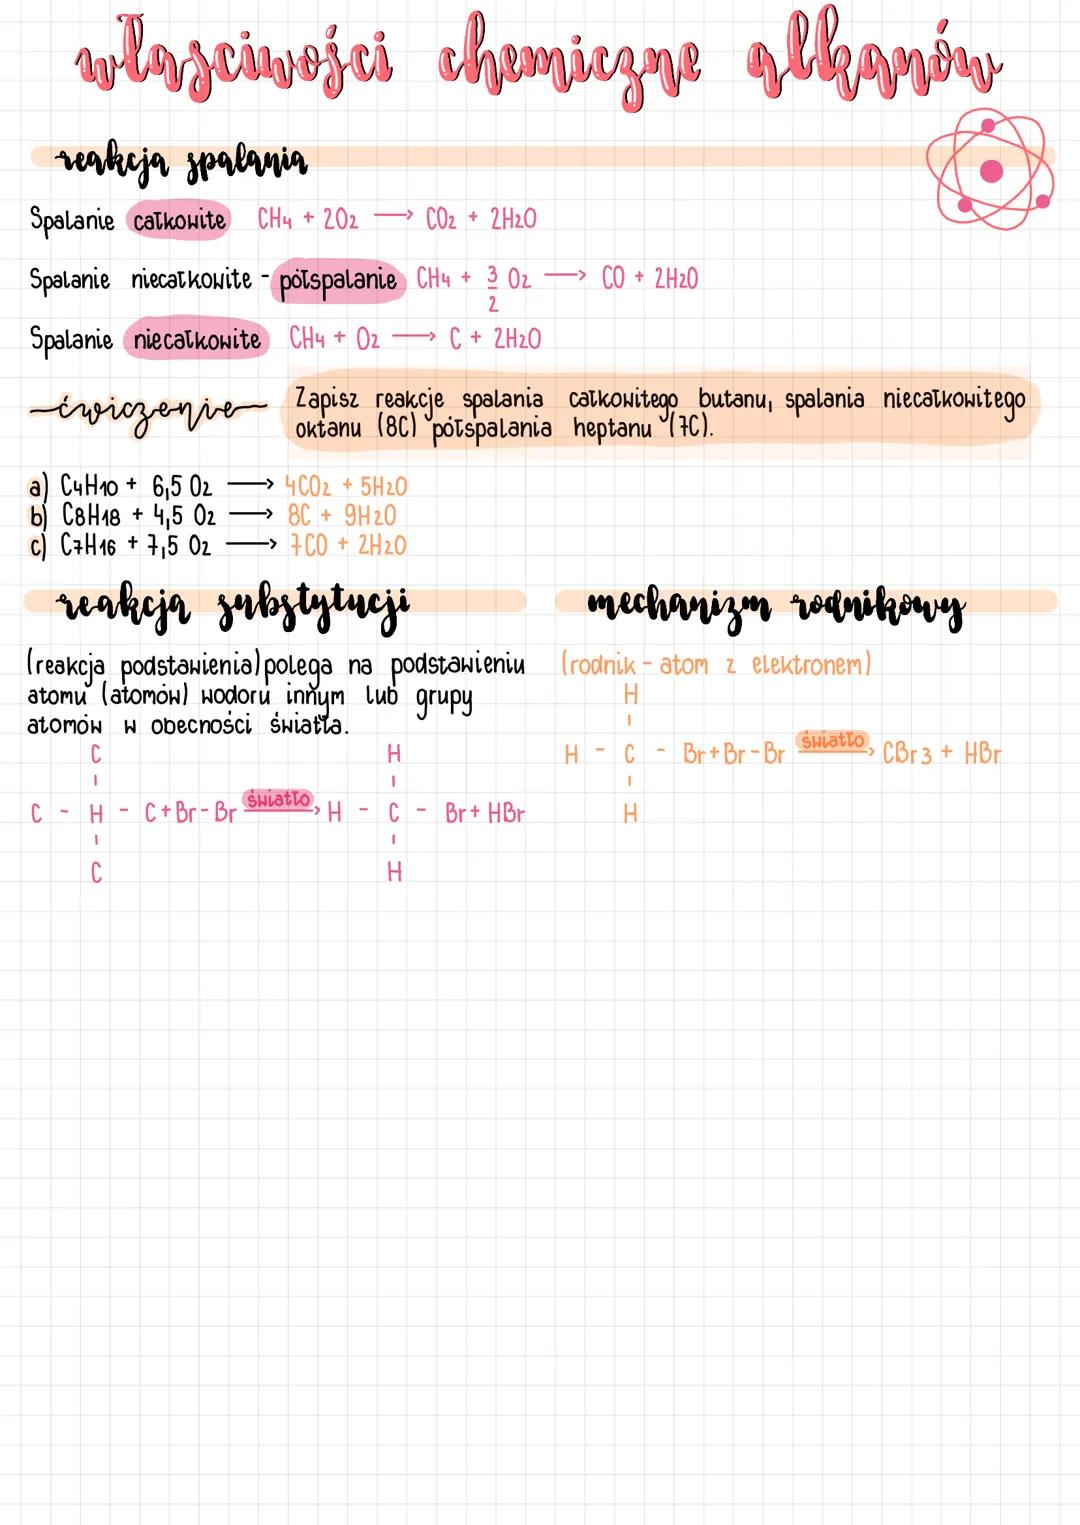 właściwości chemiczne alkanów
reakcja spalania
Spalanie całkowite CH4 + 2O2 → CO2 + 2H2O
Spalanie niecałkowite - półspalanie CH4 + 3/2 O2 → CO + 2H2O
Spalanie niecałkowite CH4 + O2 → C + 2H2O
ćwiczenie
Zapisz reakcje spalania całkowitego butanu, spalania niecałkowitego
oktanu (8C) półspalania heptanu (7C).
a) C4H10 + 6,5 O2 → 4CO2 + 5H2O
b) C8H18 + 4,5 O2 → 8C + 9H2O
c) C7H16 + 7,5 O2 → 7CO + 2H2O
reakcja substytucji
(reakcja podstawienia) polega na podstawieniu
atomu (atomów) wodoru innym lub grupy
atomów w obecności światła.
C H
C - H - C + Br - Br światło → H - C - Br + HBr
C H
mechanizm rodnikowy
(rodnik - atom z elektronem)
H
H - C - Br + Br - Br światło → CBr3 + HBr
H